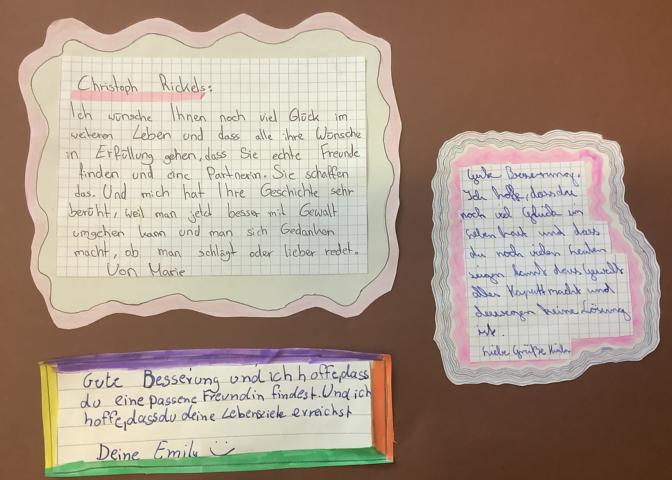 Christoph Rickels:
Ich wünsche Ihnen noch viel Glück im
weiteren Leben und dass alle ihre Wünsche
in Erfüllung gehen, dass Sie echte Freunde
finden und eine Partnerin. Sie schaffen
das. Und mich hat Ihre Geschichte sehr
berüht, weil man jetzt besser mit Gewalt
umgehen kann und man sich Gedanken
macht, ob man schlägt oder lieber redet.
Von Marie
Gute Besserung.
Ich hoffe, dass du
noch viel Glück im
Leben hast und dass
du noch vielen Leuten
sagen kannst dass Gewalt
alles kaputt macht und
deswegen keine Lösung
ist.
Liebe Grüße
Gute Besserung und ich hoffe, dass
du eine passene Freundin findest. Und ich
hoffe, dass du deine Lebensziele erreichst
Deine Emily